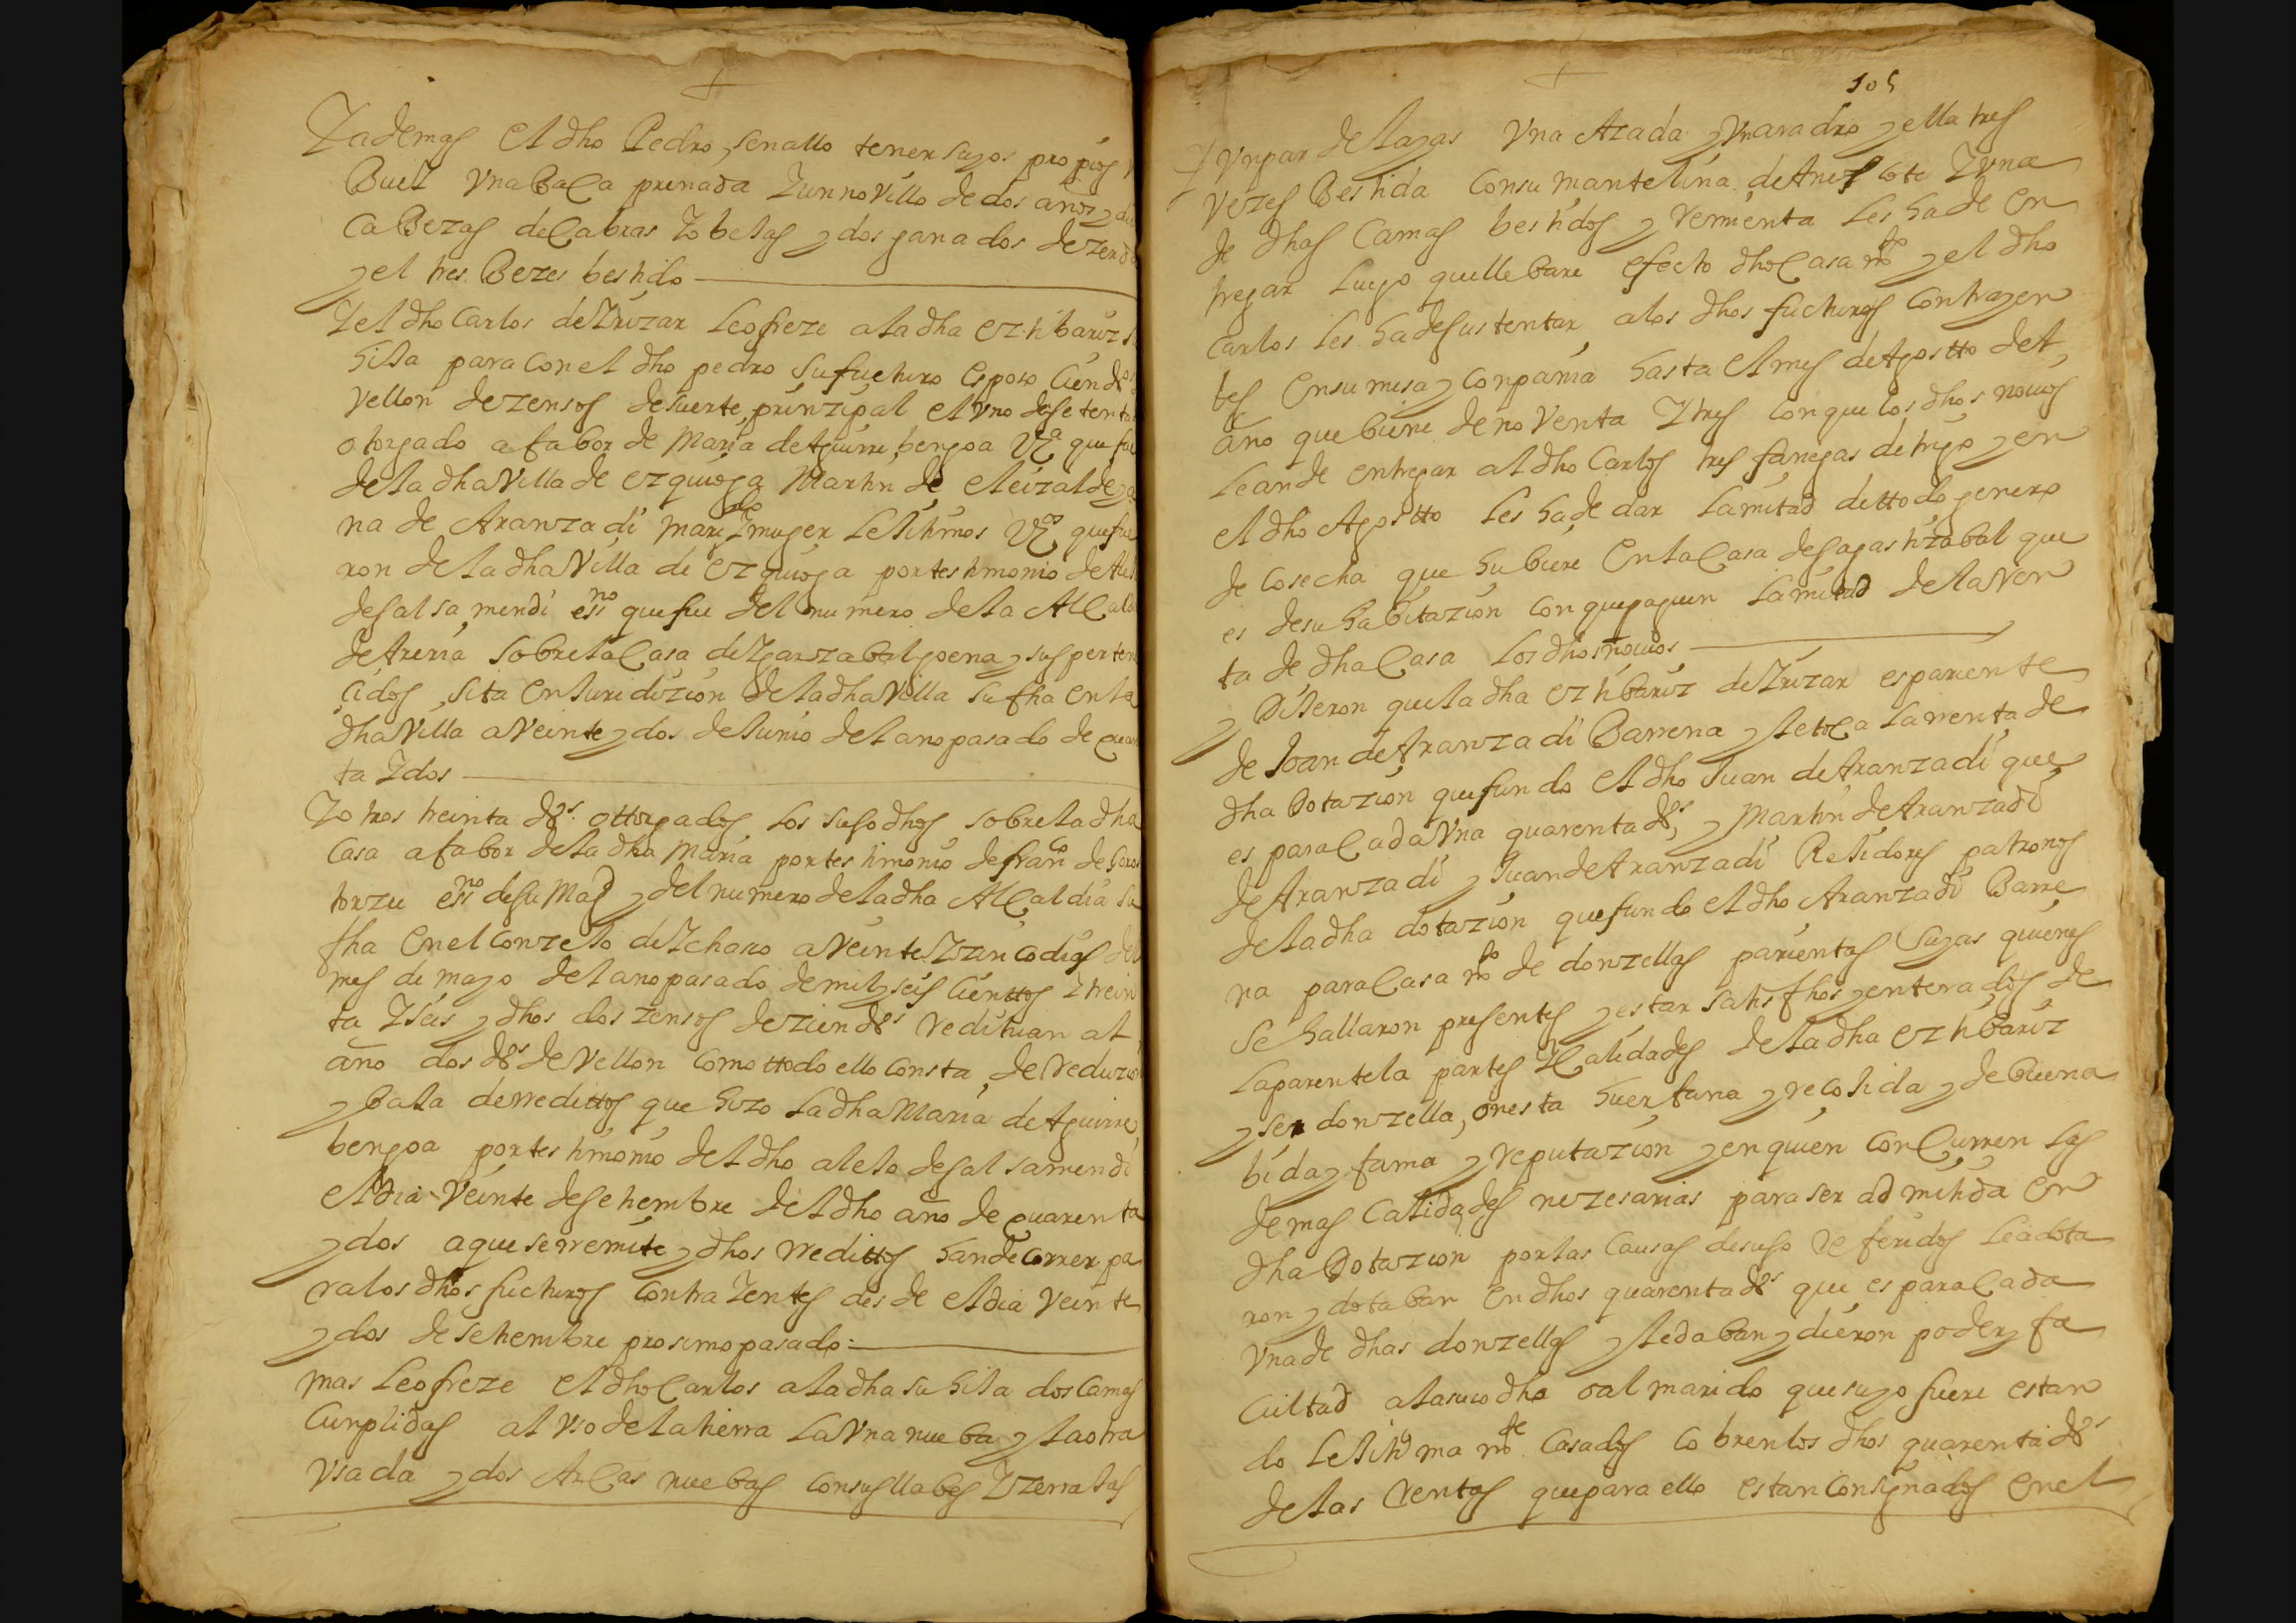 Yademas el dho Pedro, senallo tener suyos propios
Buei Vna Baca prenada Y un novillo de dos años y
CaBezas de Cabras Yobejas y dos ganados de zerda
y el tres Bezes bestido
Yel dho Carlos de Yrizar Leofreze a la dha ezthibariz su
hija para con el dho pedro su fucturo esposo Cien ds
Vellon de zensos de suerte prinzipal el Vno de setenta
otorgado a fabor de Maria de Aguirre bengoa Vª que fue
de la dha Villa de ezquioga Martin de eleizalde y
na de Aranzadi Mard Y muger Lejitimos Vºs que fue
ron de la dha Villa de ezquioga por testimonio de
de salsamendi essno que fue del numero de la Alcaldia
de Areria sobre la Casa de Ygarzabal goena y sus perten
cidos, sita en Juridizion de la dha Villa su fha en la
dha Villa a Veinte y dos de Junio del ano pasado de quaren
ta Y dos
Yotros treinta ds ottorgados Los susodhos sobre la dha
Casa a fabor de la dha Maria por testimonio de franco de Goros
torzu essno de su Magd y del numero de la dha Alcaldia su
fha en el Conzejo de Ychaso a Veinte Yzinco dias del
mes de mayo del ano pasado de mil y seis Cienttos Y trein
ta Y seis y dhos dos zensos de zien ds redituan al
año dos ds de Vellon como ttodo ello consta, de reduzion
y baja de redittos que hizo La dha Maria de Aguirre
bengoa por testimonio del dho alejo de salsamendi
el dia Veinte de setiembre del dho año de quarenta
y dos a que se rremite y dhos rredittos han de correr pa
ra los dhos fucturos Contra Yentes desde el dia Veinte
y dos de setiembre prosimo pasado:
mas Leofreze el dho Carlos a la dha su hija dos Camas
Cunplidas al Vso de la tierra La Vna nueba y la otra
Vsada y dos Arcas nuebas con sus llabes Yzerrajas
105
Y Vn par de layas Vna Azada y Vn aradro y ella tres
Vezes Bestida con su mantelina de Anascote Y Vna
de dhas Camas bestidos y rremienta Les ha de en
tregar Luego que llebare efecto dho Casamto y el dho
Carlos Les ha de sustentar a los dhos fucturos Contrayen
tes en su mesa y conpania hasta el mes de Agostto del
año que biene de noventa Y tres con que los dhos novios
Lean de entregar al dho Carlos tres fanegas de trigo y en
el dho Agostto Les ha de dar La mitad de ttodo genero
de cosecha que hubiere en la Casa de sagastizabal que
es de su habitazion con que paguen La mitad de la Ren
ta de dha Casa Los dhos novios
y Dijeron que la dha ezthibariz de Yrizar es pariente
de Joan de Aranzadi Barrena y le toca La rrenta de
dha Dotazion que fundo el dho Juan de Aranzadi que
es para Cada Vna quarenta ds, y Martin de Aranzadi
de Aranzadi y Juan de Aranzadi Rejidores patronos
de la dha dotazion que fundo el dho Aranzadi Barre
na para Casamto de donzellas parientas Suyas quienes
se hallaron presentes y estar satisfhos y enterados de
La parentela partes Y Calidades de la dha ezthibariz
y ser donzella, onesta huerfana y recojida y de buena
bida y fama y reputazion y en quien concurren Las
demas Calidades nezesarias para ser admitida en
dha Dotazion por las Causas desuso referidos Leadota
ron y dotaban en dhos quarenta ds que es para Cada
Vna de dhas donzellas y le daban y dieron poder y fa
cultad a la suso dha o al marido que suyo fuere estan
do Lejitimamte Casados Cobren los dhos quarenta ds
de las rentas que para ello estan Consignados en el